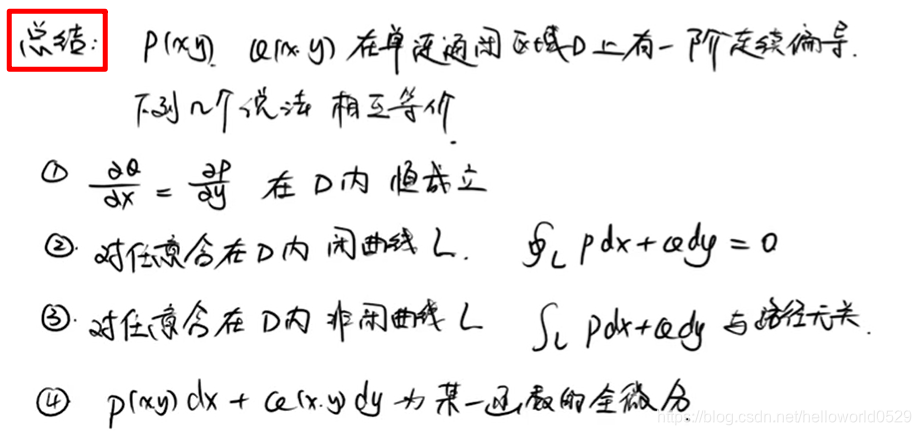 总结: P(x,y) Q(x,y) 在单连通闭区域D上有一阶连续偏导.
下列几个说法 相互等价
① ∂Q/∂x = ∂P/∂y 在 D 内 恒成立
②. 对任意含在D内 闭曲线 L. ∮L Pdx+Qdy = 0
③. 对任意含在D内 非闭曲线 L ∫L Pdx+Qdy 与路径无关.
④ P(x,y)dx + Q(x,y)dy 为某一函数的全微分.
https://blog.csdn.net/helloworld0529